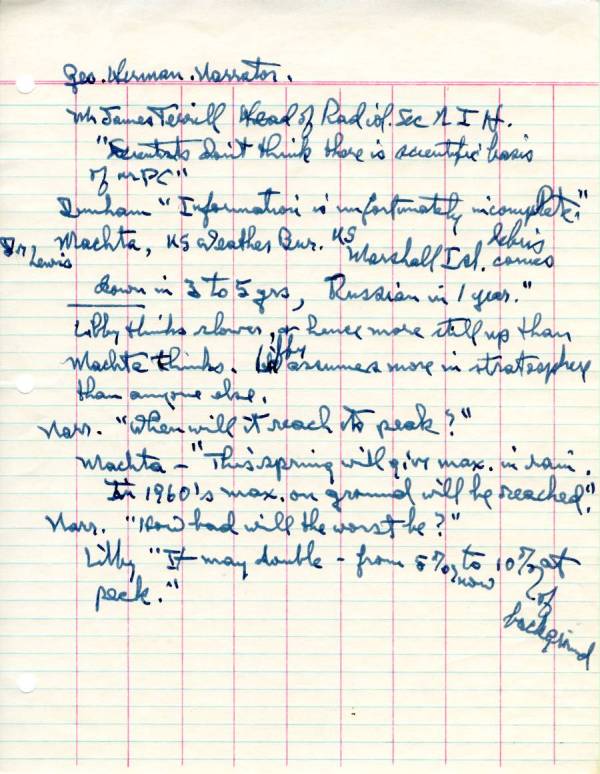 Geo. Herman. Narrator.
Mr James Terrill Head of Radiol. Sec N I H.
"Scientists don't think there is scientific basis
of MPC"
Dunham "Information is unfortunately incomplete."
Dr Lewis Machta, US Weather Bur. "US Marshall Isl. debris comes
down in 3 to 5 yrs, Russian in 1 year."
Libby thinks slower, or hence more still up than
Machta thinks. Libby assumes more in stratosphere
than anyone else.
Narr. "When will it reach its peak?"
Machta - "This spring will give max. in rain.
In 1960's max. on ground will be reached."
Narr. "How bad will the worst be?"
Libby "It may double - from 5% now to 10% at
peak." of background